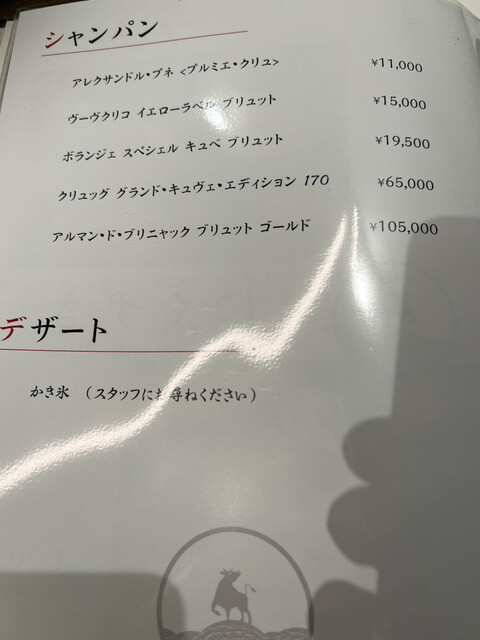 シャンパン
アレクサンドル・ブネ <プルミエ・クリュ> ¥11,000
ヴーヴクリコ イエローラベル ブリュット ¥15,000
ボランジェ スペシェル キュベ ブリュット ¥19,500
クリュッグ グランド・キュヴェ・エディション 170 ¥65,000
アルマン・ド・ブリニャック ブリュット ゴールド ¥105,000
デザート
かき氷 (スタッフにお尋ねください)